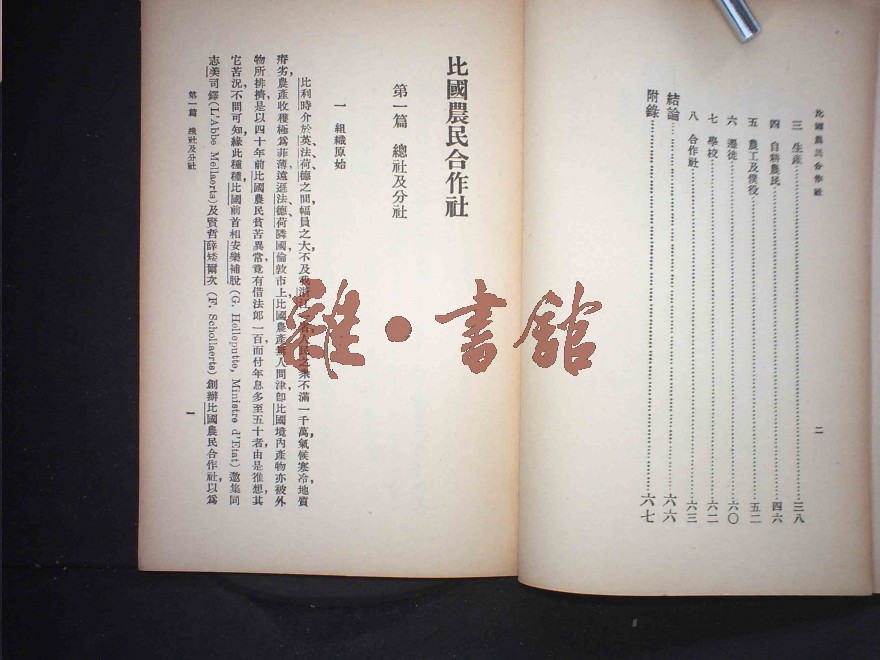 比國農民合作社
三 生產 三八
四 自耕農民 四六
五 農工及僕役 五二
六 遷徙 六〇
七 學校 六二
八 合作社 六三
結論 六六
附錄 六七
二
比國農民合作社
第一篇 總社及分社
一 組織原始
比利時介於英、法、荷、德之間，幅員之大，不及我浙江之人民之衆不滿一千萬，氣候寒冷，地質
瘠劣，農產收穫極爲菲薄，遠遜法、德、荷隣國，倫敦市上，比國農產無人問津，即比國境內產物亦被外
物所排擠，是以四十年前比國農民貧苦異常，竟有借法郎一百而付年息多至五十者，由是推想，其
它苦況，不問可知，緣此種種，比國前首相安樂補脫 (G. Helleputte, Ministre d'Etat) 邀集同
志美司鐸 (L'Abbe Mellaerts) 及賢哲薛矮爾次 (F. Schollaerts) 創辦比國農民合作社，以爲
第一篇 總社及分社
一
雜·書館